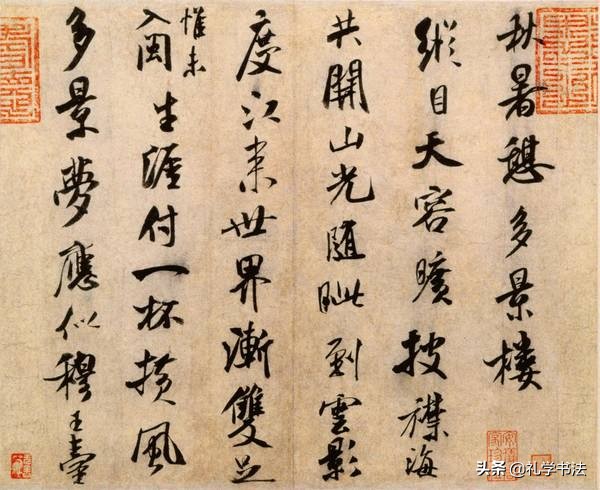 秋暑憩多景樓
縱目天容曠披襟海
共開山光隨眦到雲影
度江來世界漸雙足
惟未
入閩生涯付一杯横風
多景夢應似穆王臺
头条 @礼学书法